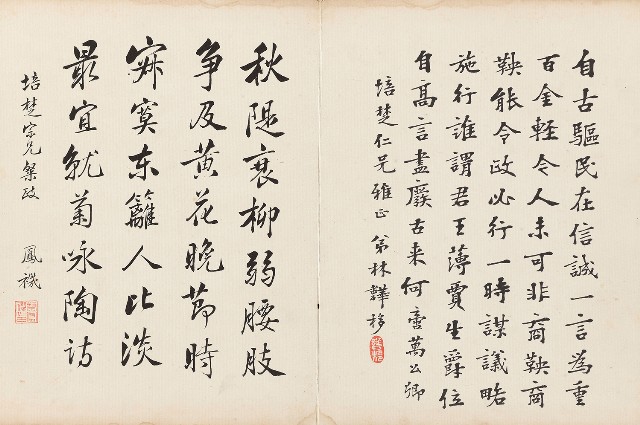 自古驅民在信誠一言為重
百金輕今人未可非商鞅商
鞅能令政必行一時謀議略
施行誰謂君王薄賈生爵位
自高言盡廢古来何啻萬公卿
培楚仁兄雅正 弟林鞾移
秋隄衰柳弱腰肢
争及黄花晚節時
寂寞东籬人比淡
最宜就菊咏陶詩
培楚宗兄粲政 鳳禨